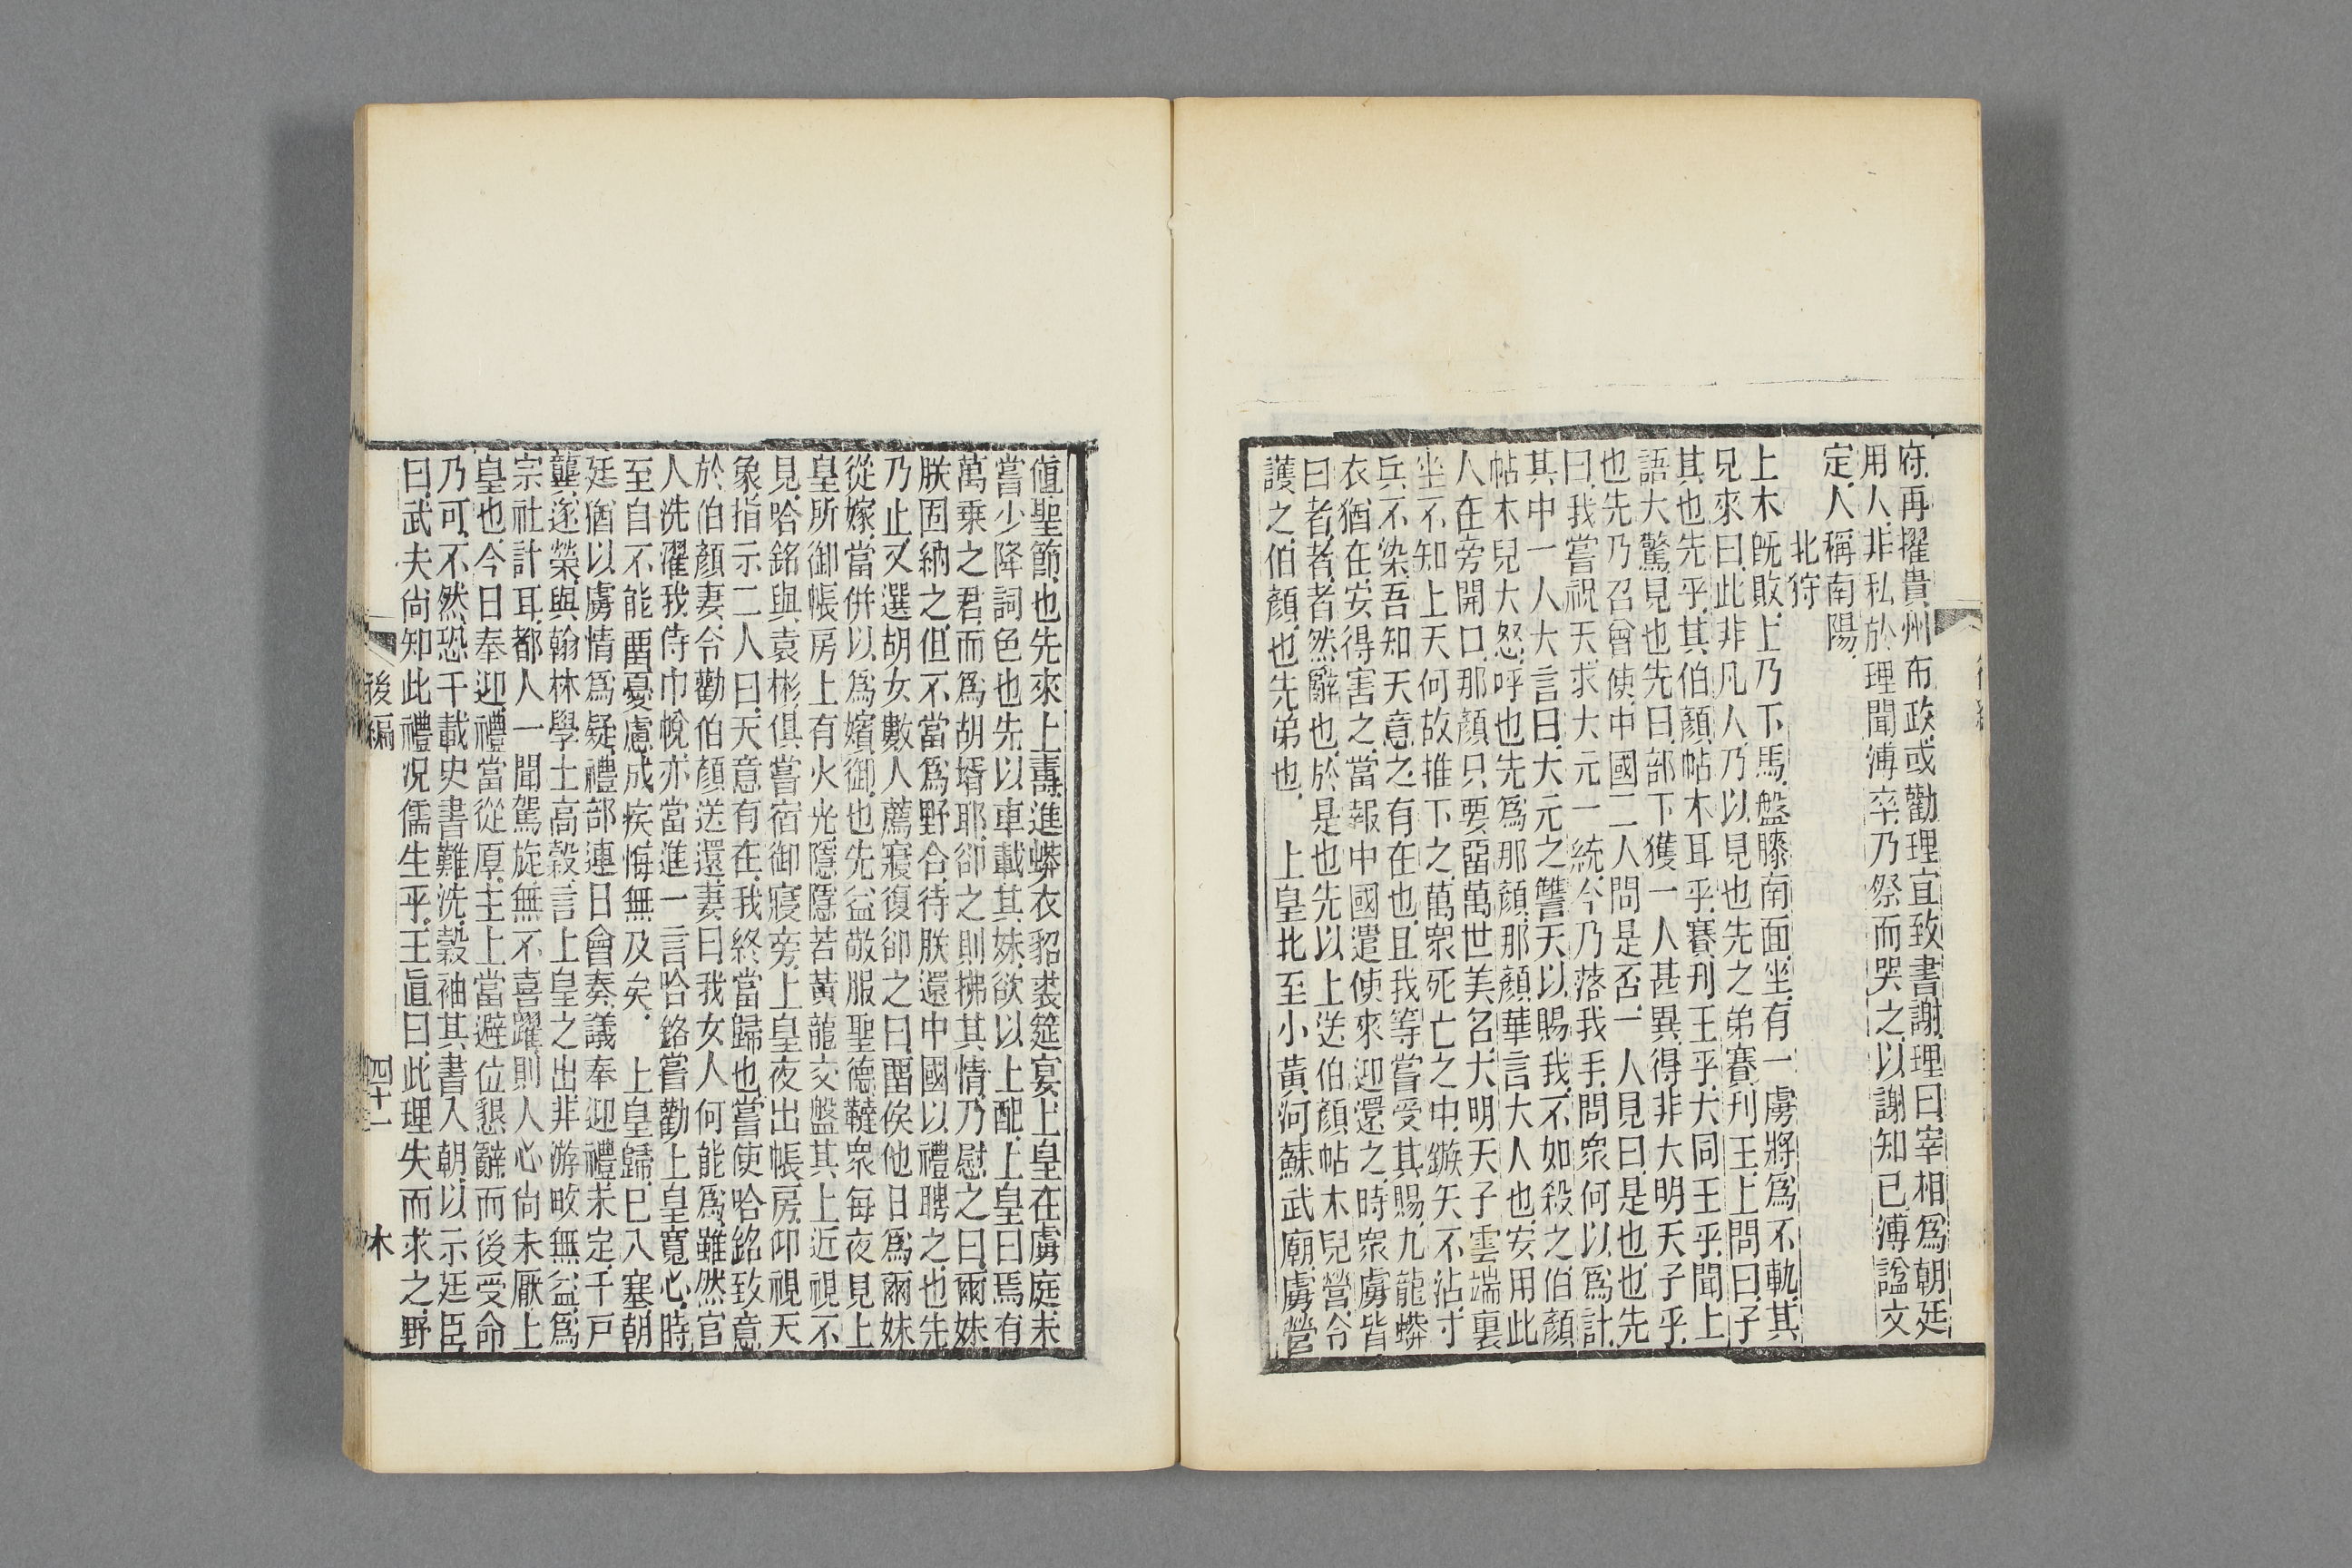 府再擢貴州布政或勸理宜致書謝理曰宰相爲朝廷
用人非私於理聞溥卒乃祭而哭之以謝知已溥諡文
定人稱南陽
北狩
上木旣敗上乃下馬盤膝南面坐有一虜將爲不軌其
兄來曰此非凡人乃以見也先之弟賽刋王上問曰子
其也先乎其伯顏帖木耳乎賽刋王乎大同王乎聞上
語大驚見也先曰部下獲一人甚異得非大明天子乎
也先乃召曾使中國二人問是否一人見曰是也也先
曰我嘗祝天求大元一統今乃落我手問衆何以爲計
其中一人大言曰大元之讐天以賜我不如殺之伯顏
帖木兒大怒呼也先爲那顏那顏華言大人也安用此
人在旁開口那顏只要留萬世美名大明天子雲端裏
坐不知上天何故推下之萬衆死亡之中鏃矢不沾寸
兵不染吾知天意之有在也且我等嘗受其賜九龍蟒
衣猶在安得害之當報中國遣使來迎還之時衆虜皆
曰者者者然辭也於是也先以上送伯顏帖木兒營令
護之伯顏也先弟也　上皇北至小黃河蘇武廟虜營
値聖節也先來上壽進蟒衣貂裘筵宴上皇在虜庭未
嘗少降詞色也先以車載其妹欲以上配上皇曰焉有
萬乘之君而爲胡壻耶卻之則拂其情乃慰之曰爾妹
朕固納之但不當爲野合待朕還中國以禮聘之也先
乃止又選胡女數人薦寢復卻之曰留俟他日爲爾妹
從嫁當併以爲嬪御也先益敬服聖德韃衆每夜見上
皇所御帳房上有火光隱隱若黃龍交盤其上近視不
見哈銘與袁彬俱嘗宿御寢旁上皇夜出帳房仰視天
象指示二人曰天意有在我終當歸也嘗使哈銘致意
於伯顏妻令勸伯顏送還妻曰我女人何能爲雖然官
人洗濯我侍巾帨亦當進一言哈銘嘗勸上皇寬心時
至自不能留憂慮成疾悔無及矣　上皇歸已入塞朝
廷猶以虜情爲疑禮部連日會奏議奉迎禮未定千戸
龔遂榮與翰林學士高穀言上皇之出非游畋無益爲
宗社計耳都人一聞駕旋無不喜躍則人心尙未厭上
皇也今日奉迎禮當從厚主上當避位懇辭而後受命
乃可不然恐千載史書難洗穀袖其書入朝以示廷臣
曰武夫尙知此禮况儒生乎王直曰此理失而求之野
後編　四十一　木